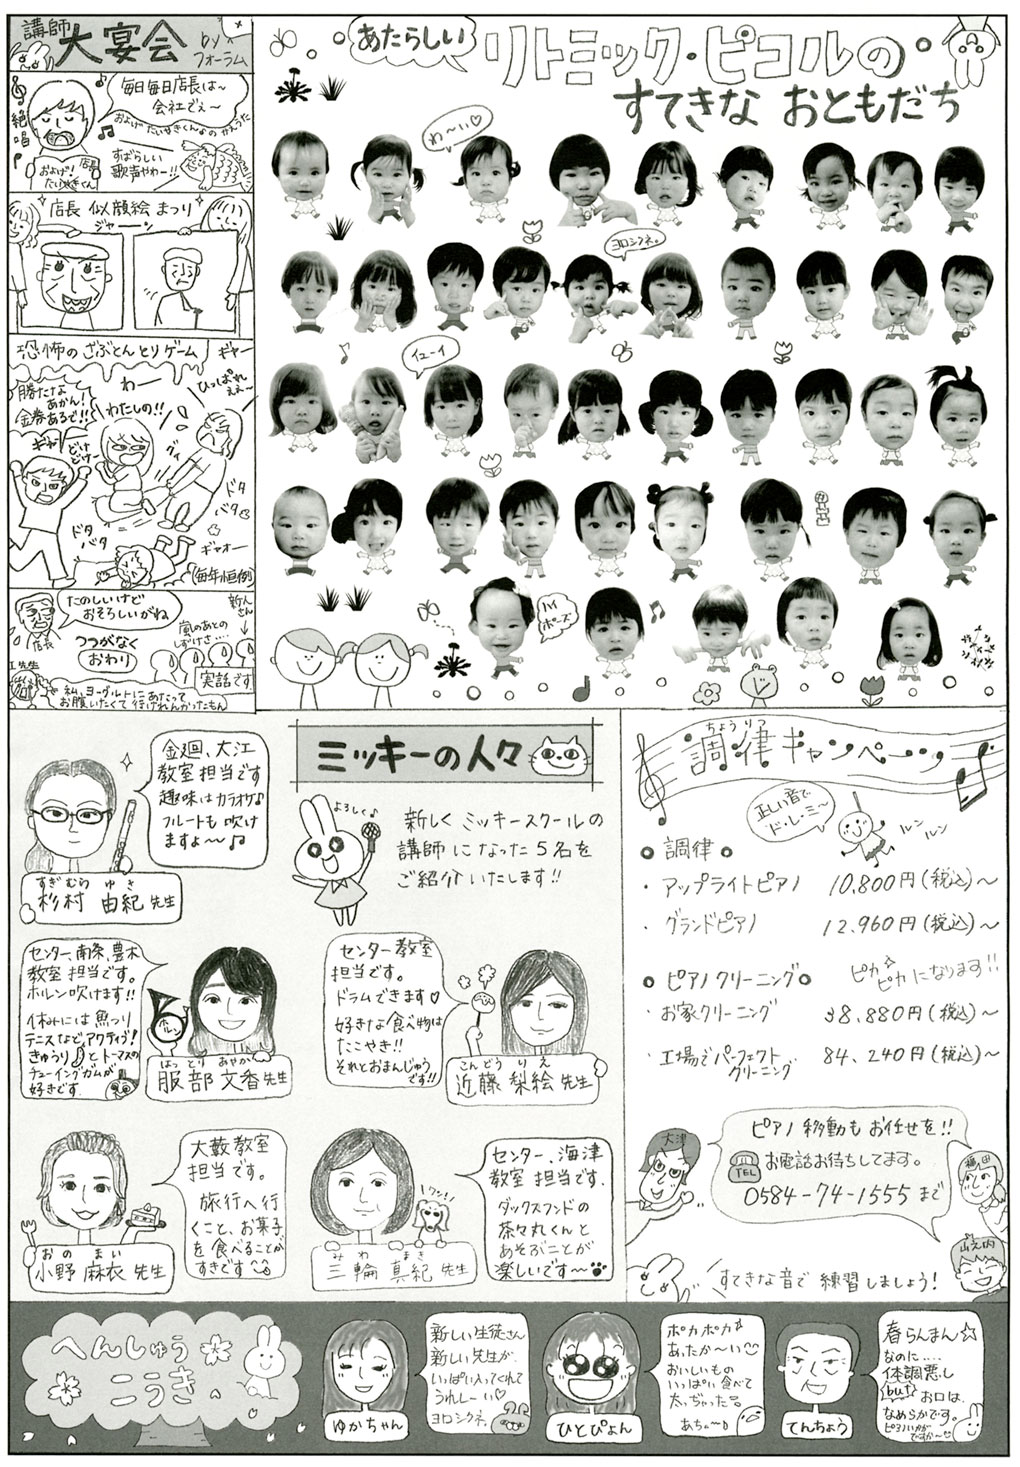 講師
大宴会
by
フォーラム
毎日毎日店長は〜
会社でぇ〜
およげたいやきくんのかえうた
絶唱
店長
およげ!
たいやきくん
すばらしい
歌声やわー!!
店長 似顔絵 まつり
ジャーン
恐怖のざぶとんとりゲーム
ギャー
わー
ひっぱれ
えぇ〜
勝たな
あかん!
金券あるで!!
わたしの!!
ギャー
どけ
どけー
グイ
ドタ
バタ
ドタ
バタ
ギャオー
(毎年恒例)
たのしいけど
おそろしいがね
店長
つつがなく
おわり
新人
さん
嵐のあとの
しずけさ‥‥
実話です
工先生
私、ヨーグルトにあたって
お腹いたくて行けれんかったもん
あたらしい
リトミック・ピコルの
すてきな おともだち
わ〜い♡
ヨロシクネ。
イエーイ
ハイ
ポーズ
ミッキーの人々
よろしく♪
新しく ミッキースクールの
講師になった5名を
ご紹介いたします!!
金廻、大江
教室担当です
趣味はカラオケ♪
フルートも吹け
ますよ〜♫
すぎむら ゆき
杉村 由紀 先生
センター、南条、豊木
教室担当です。
ホルン吹けます!!
休みには魚つり
テニスなど、アクティブ!
きゅうりとトーマスの
チューイングガムが
好きです。
ホルン
はっとり あやか
服部 文香 先生
センター教室
担当です。
ドラムできます♡
好きな食べ物は
たこやき!!
それとおまんじゅう
です!!
こんどう りえ
近藤 梨絵 先生
大藪教室
担当です。
旅行へ行
くこと、お菓子
を食べることが
すきです
おの まい
小野 麻衣 先生
センター、海津
教室担当です。
ダックスフンドの
茶々丸くんと
あそぶことが
楽しいです〜
ワン!!
みわ まき
三輪 真紀 先生
ちょうりつ
調律キャンペーン
正しい音で
ド・レ・ミ〜
ルン
ルン
調律
・アップライトピアノ 10,800円(税込)〜
・グランドピアノ 12,960円(税込)〜
ピアノクリーニング
ピカ
ピカになります!!
・お家クリーニング 38,880円(税込)〜
・工場でパーフェクト
クリーニング
84,240円(税込)〜
ピアノ移動もお任せを!!
TEL
お電話お待ちしてます。
0584-74-1555まで
大津
福田
山之内
すてきな音で練習しましょう!
へんしゅう
こうき
新しい生徒さん
新しい先生が、
いっぱい入ってくれて
うれし〜い♡
ヨロシクネ。
ゆかちゃん
ポカポカ
あったか〜い
おいしいもの
いっぱい食べて
太っちゃった
あちぃ〜
ひとぴょん
春らんまん☆
なのに‥‥
体調悪し
but お口は、
なめらかです。
ピアノいかが
ですか〜
てんちょう